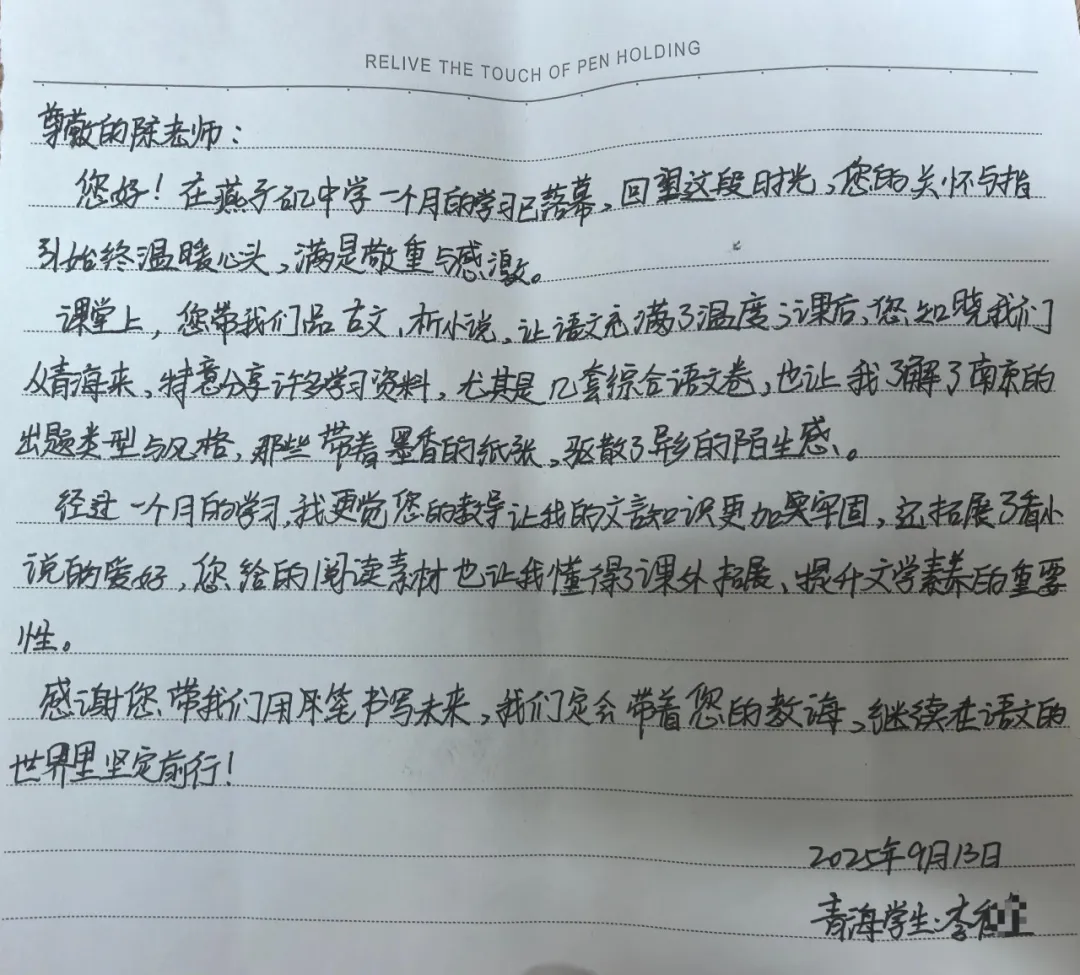 RELIVE THE TOUCH OF PEN HOLDING
尊敬的陈老师：
您好！在燕子矶中学一个月的学习已落幕，回望这段时光，您的关怀与指
引始终温暖心头，满是敬重与感激。
课堂上，您带我们品古文、析小说，让语文充满了温度；课后，您知晓我们
从青海来，特意分享许多学习资料，尤其是几套综合语文卷，也让我了解了南京的
出题类型与风格，那些带着墨香的纸张，驱散了异乡的陌生感。
经过一个月的学习，我更觉您的教导让我的文言知识更加牢固，还拓展了看小
说的爱好，您给的阅读素材也让我懂得了课外拓展、提升文学素养的重要
性。
感谢您带我们用笔书写未来，我们定会带着您的教诲，继续在语文的
世界里坚定前行！
2025年9月13日
青海学生：李